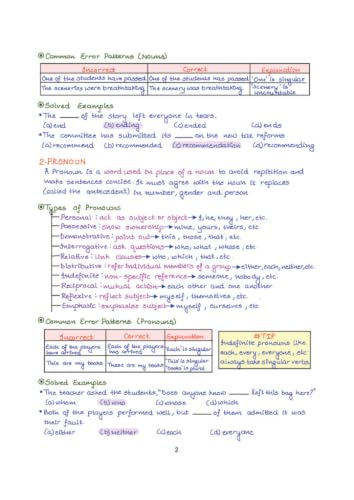 Common Error Patterns (Nouns)
Incorrect Correct Explanation
One of the students have passed One of the students has passed 'One' is singular
The sceneries were breathtaking The scenery was breathtaking 'Scenery' is uncountable
Solved Examples
*The ____ of the story left everyone in tears.
(a) end (b) ending (c) ended (d) ends
*The committee has submitted its ____ on the new tax reforms
(a) recommend (b) recommended (c) recommendation (d) recommending
2-PRONOUN
A Pronoun is a word used in place of a noun to avoid repitition and
make sentences concise. It must agree with the noun it replaces
(called the antecedent) in number, gender and person
Types of Pronouns
Personal : act as subject or object → I, he, they, her, etc.
Possessive : show ownership → mine, yours, theirs, etc
Demonstrative : point out → this, those, that, etc
Interrogative : ask questions → who, what, whose, etc
Relative : link clauses → who, which, that, etc
Distributive : refer individual members of a group → either, each, neither, etc.
Indefinite : non-specific reference → someone, nobody, etc.
Reciprocal : mutual action → each other and one another
Reflexive : reflect subject → myself, themselves, etc.
Emphatic : emphasise subject → myself, ourselves, etc.
Common Error Patterns (Pronouns)
Incorrect Correct Explanation
Each of the players have arrived Each of the players has arrived 'Each' is singular
This are my books These are my books 'This' is singular books is plural
#TIP
Indefinite pronouns like
each, every, everyone, etc.
always take singular verbs.
Solved Examples
*The teacher asked the students, "Does anyone know ____ left this bag here?"
(a) whom (b) who (c) whose (d) which
*Both of the players performed well, but ____ of them admitted it was
their fault.
(a) either (b) neither (c) each (d) everyone
2